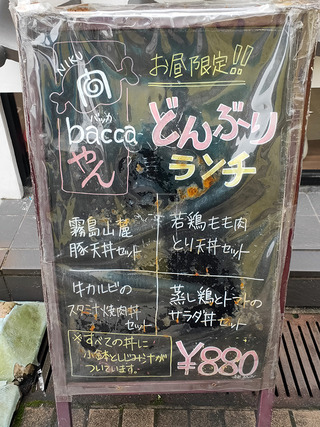 NIKU
バッカ
bacca
やん
お昼限定!!
どんぶり
ランチ
霧島山麓
豚天丼セット
若鶏もも肉
とり天丼セット
牛カルビの
スタミナ焼肉丼
セット
蒸し鶏とトマトの
サラダ丼セット
※すべての丼に
小鉢としじみ汁が
ついています.
¥880